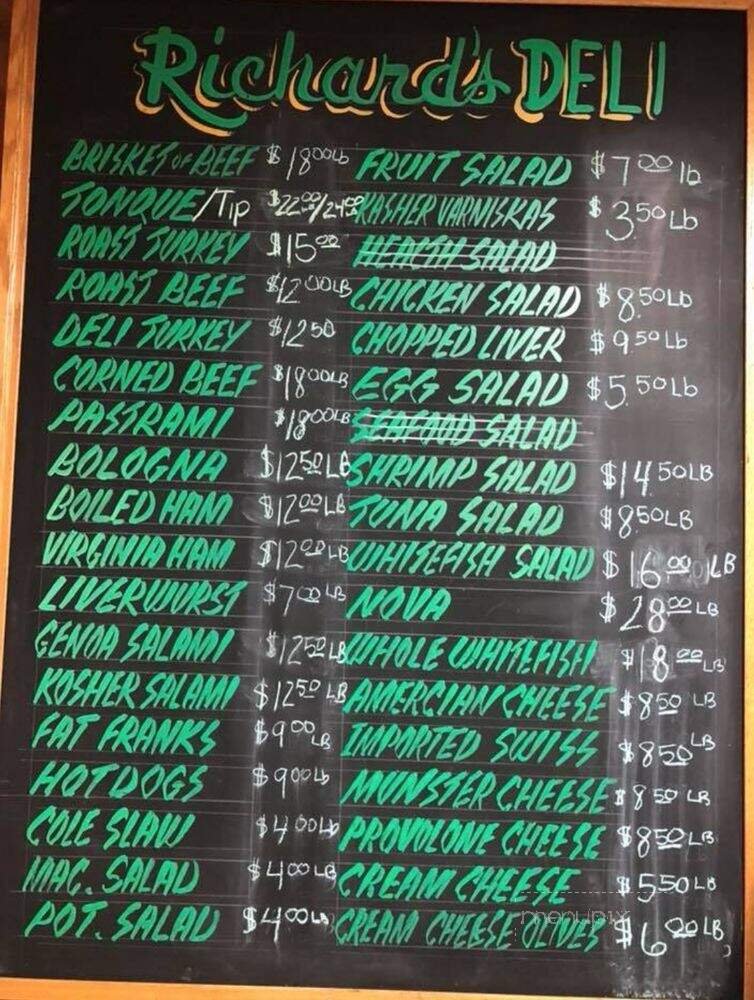 Richard's DELI
BRISKET of BEEF $18.00 Lb
TONQUE/Tip $22.00/24.00
ROAST TURKEY $15.00
ROAST BEEF $12.00 LB
DELI TURKEY $12.50
CORNED BEEF $18.00 LB
PASTRAMI $18.00 LB
BOLOGNA $12.50 LB
BOILED HAM $12.00 LB
VIRGINIA HAM $12.00 LB
LIVERWURST $7.00 LB
GENOA SALAMI $12.50 LB
KOSHER SALAMI $12.50 LB
FAT FRANKS $9.00 LB
HOT DOGS $9.00 Lb
COLE SLAW $4.00 Lb
MAC. SALAD $4.00 LB
POT. SALAD $4.00 LB
FRUIT SALAD $7.00 lb
KASHER VARNISKAS $3.50 Lb
HEALTH SALAD
CHICKEN SALAD $8.50 Lb
CHOPPED LIVER $9.50 Lb
EGG SALAD $5.50 Lb
SEAFOOD SALAD
SHRIMP SALAD $14.50 LB
TUNA SALAD $8.50 LB
WHITEFISH SALAD $16.00 LB
NOVA $28.00 LB
WHOLE WHITEFISH $18.00 LB
AMERCIAN CHEESE $8.50 LB
IMPORTED SWISS $8.50 LB
MUNSTER CHEESE $8.50 LB
PROVOLONE CHEESE $8.50 LB
CREAM CHEESE $5.50 LB
CREAM CHEESE OLIVES $6.00 LB
menupix